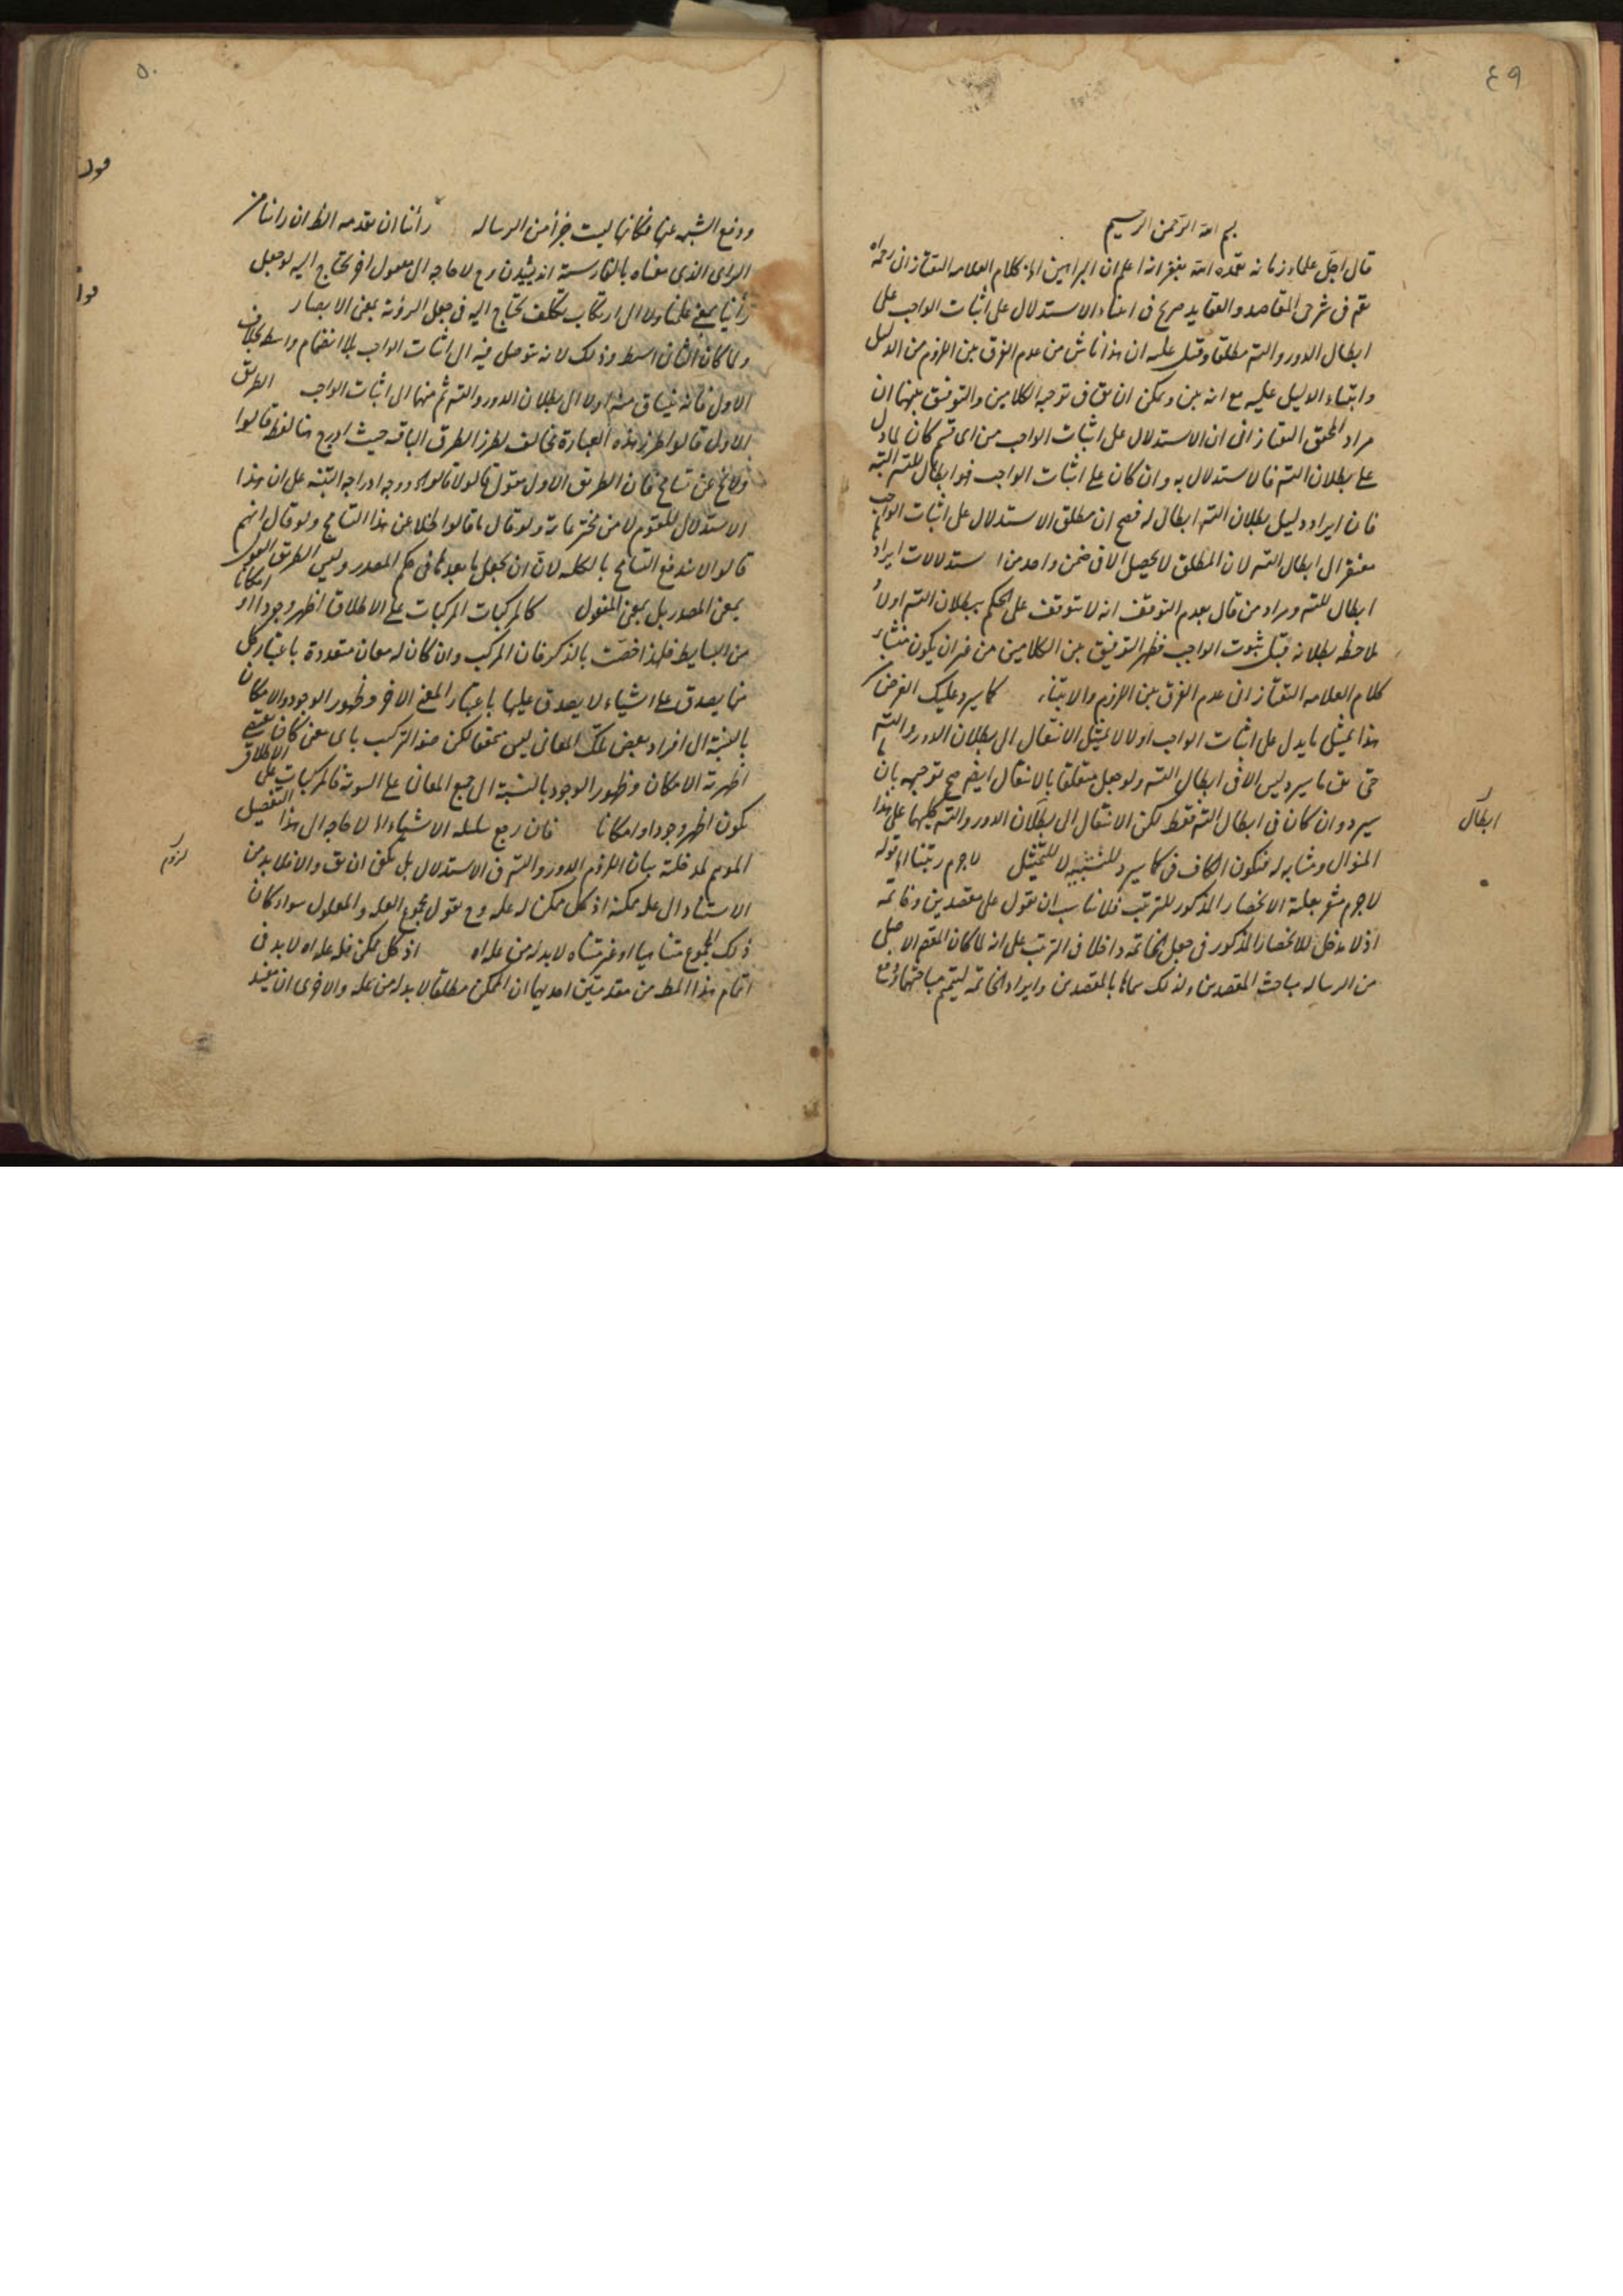 ٤٩
بسم الله الرحمن الرحيم
قال اجل علماء زمانه تغمده الله بغفرانه اعلم ان البراهين الخ كلام العلامه التفتازانى رحمه الله
فى شرحى المقاصد والعقايد صريح فى ابتناء الاستدلال على اثبات الواجب على
ابطال الدور والتسم مطلقا وقيل عليه ان هذا ناش من عدم الفرق بين اللزوم من الدليل
وابتناء الدليل عليه مع انه بين ويمكن ان يق فى توجيه الكلامين والتوفيق بينهما ان
مراد المحقق التفتازانى ان الاستدلال على اثبات الواجب من اى قسم كان لما دل
على بطلان التسم فالاستدلال به وان كان على اثبات الواجب فهو ابطال للتسم البته
فان ايراد دليل بطلان التسم ابطال له فصح ان مطلق الاستدلال على اثبات الواجب
مفتقر الى ابطال التسم لان المطلق لا يحصل الا فى ضمن واحد من استدلالات ايرادها
ابطال للتسم ومراد من قال بعدم التوقف انه لا يتوقف على الحكم ببطلان التسم اولا و
ملاحظه بطلانه قبل ثبوت الواجب فظهر التوفيق بين الكلامين من غير ان يكون منشاء
كلام العلامه التفتازانى عدم الفرق بين اللزوم والابتناء كما سيرد عليك الغرض
هذا تمثيل ما يدل على اثبات الواجب اولا لا تمثيل الانتقال الى بطلان الدور والتسم
حتى يق ما سيرد ليس الا فى ابطال التسم ولو جعل متعلقا بالانتقال ايضا صح توجيهه بان ما
سيرد وان كان فى ابطال التسم فقط لكن الانتقال الى بطلان الدور والتسم كليهما على هذا
ابطال
المنوال ومشابه له فيكون الكاف فى كما سيرد للتشبيه لا للتمثيل لاجرم رتبنا الخ قوله
لاجرم مشعر بعلية الانحصار المذكور للترتيب فلا يناسب ان يقول على مقصدين وخاتمة
اذ لا مدخل للانحصار المذكور فى جعل الخاتمه داخلا فى الترتيب على انه لما كان المقصد الاصلى
من الرساله مباحث المقصدين ولذلك سماها بالمقصدين وايراد الخاتمه لتتميم مباحثهما
٥٠
ودفع الشبهه عنها فكانها ليست جزأ من الرساله رأينا ان نقدمه الظ ان رأينا من
الراى الذى معناه بالفارسية انديشيدن وح لا حاجه الى مفعول اخر يحتاج اليه لو جعل
رأينا بمعنى علمنا ولا الى ارتكاب تكلف يحتاج اليه فى جعل الرؤية بمعنى الابصار
ولما كان الثانى ابسط وذلك لانه يتوصل فيه الى اثبات الواجب بلا انضمام واسطه بخلاف
الاول فانه ينساق منه اولا الى بطلان الدور والتسم ثم منهما الى اثبات الواجب الطريق
الاول قالوا طرز هذه العبارة مخالف لطرز الطرق الباقيه حيث ادرج هنا لفظ قالوا
ولا يخ عن تسامح فان الطريق الاول مقول قالوا لا قالوا ووجه ادراجه التنبيه على ان هذا
الاستدلال للقوم لا من مخترعاته ولو قال ما قالوا لخلا عن هذا التسامح ولو قال انهم
قالوا لا يندفع التسامح بالكليه لان ان يجعل ما بعدها فى حكم المصدر وليس الطريق القول
بمعنى المصدر بل بمعنى المفعول كالمركبات المركبات على الاطلاق اظهر وجودا او امكانا
من البسايط فلهذا خصت بالذكر فان المركب وان كان له معان متعددة باعتبار كل
منها يصدق على اشياء لا يصدق عليها باعتبار المعنى الاخر وظهور الوجود والامكان
بالنسبة الى افراد بعض تلك المعانى ليس متحققا لكن ضد التركيب باى معنى كان يقتضى
اظهرية الامكان وظهور الوجود بالنسبة الى جميع المعانى على السوية فالمركبات على الاطلاق
يكون اظهر وجودا وامكانا فان رجع سلسله الاشياء الخ لا حاجه الى هذا التفصيل
الموهم لمدخلية بيان اللزوم الدور والتسم فى الاستدلال بل يكفى ان يق والا فلا بد من
لزوم
الاستناد الى علة ممكنة اذ كل ممكن له علة وح نقول مجموع العلة والمعلول سواء كان
ذلك المجموع متناهيا او غير متناه لا بد له من علة اه اذ كل ممكن فله علة اه لا بد فى
اتمام هذا المطلب من مقدمتين احديهما ان الممكن مطلقا لا بد له من علة والاخرى ان يفيد